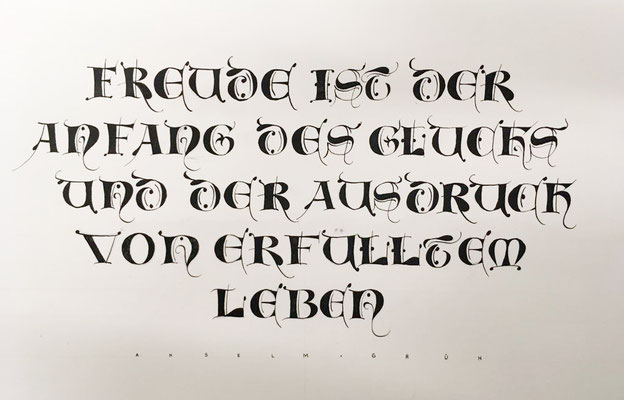 FREUDE IST DER
ANFANG DES GLUCKS
UND DER AUSDRUCK
VON ERFULLTEM
LEBEN
ANSELM · GRÜN